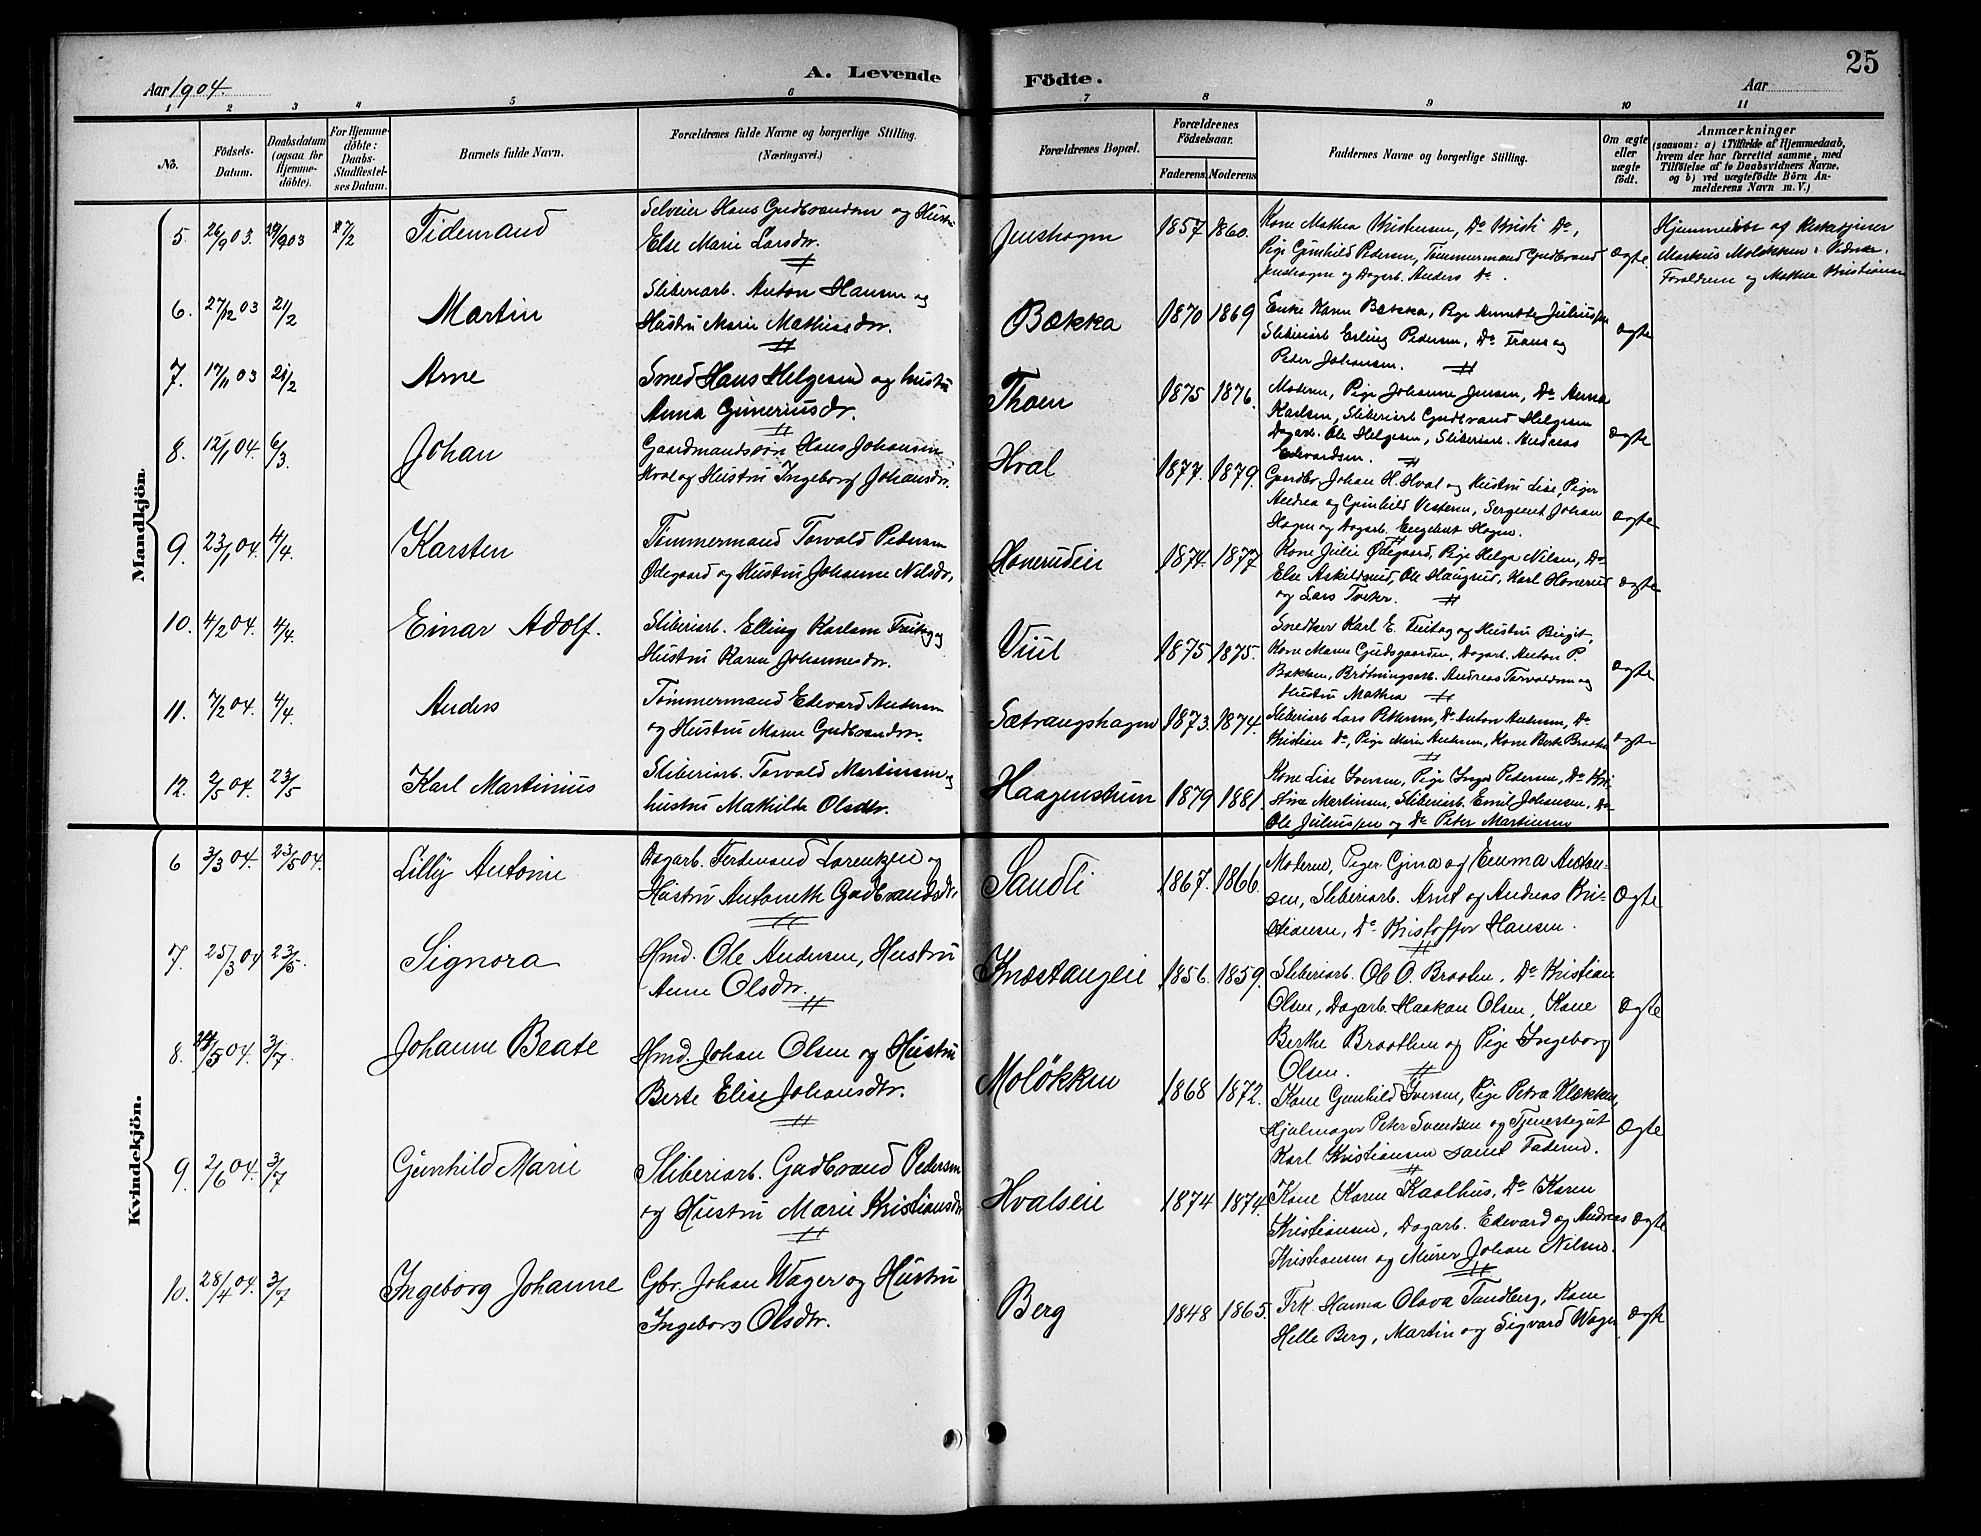 25
Aar 1904.
A. Levende Födte.
Aar
1 2 3 4 5 6 7 8 9 10 11
No.
Födsels-Datum.
Daabsdatum (ogsaa for Hjemme-döbte).
For Hjemme-döbte: Daabs-Stadfæstel-ses Datum.
Barnets fulde Navn.
Forældrenes fulde Navne og borgerlige Stilling. (Næringsvei.)
Forældrenes Bopæl.
Forældrenes Födselsaar.
Faderens Moderens
Faddernes Navne og borgerlige Stilling.
Om ægte eller uægte födt.
Anmærkninger
(saasom: a) i Tilfælde af Hjemmedaab,
hvem der har forrettet samme, med
Tilföielse af to Daabsvidners Navne.
og b) ved uægtefödte Börn An-
melderens Navn m. V.)
Mandkjön
5. 26/9 03. 29/9 03 7/2 Tidemand
Selveier Hans Gudbrandsen og Hustru
Else Marie Larsdr.
Jenshagen 1857 1860.
Kone Mathea Kristiansen, Do Kristi Do,
Pige Gunhild Pedersen, Tømmermand Gudbrand
Jenshagen og Dagarb. Anders Do.
ægte.
Hjemmedøbt af
Markus Moløkken: Vidner:
Forældrene og Mathea Kristiansen
6. 27/12 03 21/2 Martin
Sliberiarb. Anton Hansen og
Hustru Marie Mathiasdr.
Bækka 1870 1869
Enke Karen Bækka, Pige Annette Juliussen
Sliberiarb Erling Pedersen, Do Frans og
Peder Johansen.
ægte
7. 17/11 03 21/2 Arne
Smed Hans Helgesen og hustru
Anna Guneriusdr.
Thoen 1875 1876.
Moderen, Pige Johanne Jensen, Do Anna
Karlsen, Sliberiarb Gudbrand Helgesen
Dagarb. Ole Helgesen, Sliberiarb. Andreas
Edvardsen.
ægte
8. 12/1 04. 6/3. Johan
Gaardmandssøn Hans Johansen
Hval og Hustru Ingeborg Johansdr.
Hval 1877. 1879.
Gaardbr. Johan H. Hval og Hustru Lise, Piger
Andrea og Gunhild Vesteren, Sergeant Johan
Hagen og Dagarb. Engebret Hagen.
ægte
9. 23/1 04. 4/4. Karsten
Tømmermand Torvald Pedersen
Ødegaard og Hustru Johanne Nilsdr.
Honerudeie 1874. 1877
Kone Julie Ødegaard, Pige Helga Nilsen, Do
Else Askildsrud, Ole Haugrud, Karl Honerud
og Lars Tveter.
ægte
10. 4/2 04. 4/4. Einar Adolf.
Sliberiarb. Elling Karlsen Freitag og
Hustru Karen Johannesdr.
Viul 1875 1875.
Snedker Karl E. Freitag og Hustru Birgit,
Kone Maren Gudsgaarden, Dagarb. Anton P.
Bakken, Brøtningsarb. Andreas Torvaldsen og
Hustru Mathea
ægte
11. 7/2 04. 4/4. Anders
Tømmermand Edvard Andersen
og Hustru Maren Gudbrandsdr.
Sætrangshagen 1873. 1874.
Sliberiarb Lars Pettersen, Do Anton Andersen, Do
Kristian Do, Pige Marie Andersen, Kone Berte Braaten
ægte
12. 2/5 04. 23/5 Karl Martinius
Sliberiarb. Torvald Martinsen og
hustru Mathilde Olsdtr.
Haagenstrun 1879 1881.
Kone Lise Iversen, Pige Inga Pedersen, Do Kri-
stine Martinsen, Sliberiarb. Emil Johansen, Do
Ole Juliussen og Do Peter Martinsen
Kvindekjön.
6 3/3 04. 23/5 04. Lilly Antonie
Dagarb. Ferdinand Lorentzen og
Hustru Antonette Gudbrandsdtr
Sandli 1867. 1866.
Moderen, Piger Gina og Emma Anton-
sen, Sliberiarb. Arnt og Andreas Kri-
stiansen, Do Kristoffer Hansen.
Ægte
7. 25/3 04 23/5. Signora
Hmd. Ole Andersen, Hustru
Anne Olsdtr.
Knestangeie 1856. 1859.
Sliberiarb. Ole O. Braaten, Do Kristian
Olsen, Dagarb Haakon Olsen, Kone
Berthe Braathen og Pige Ingeborg
Olsen.
ægte
8. /5 04. 3/7. Johanne Beate
Hmd. Johan Olsen og Hustru
Berte Elise Johansdtr.
Moløkken 1868 1872.
Kone Gunhild Iversen, Pige Petra Klækken,
Hjulmager Peter Svendsen og Tjenestegut
Karl Kristiansen samt Faderen.
Ægte
9. 2/6 04. 3/7 Gunhild Marie
Sliberiarb. Gudbrand Pedersen
og Hustru Marie Kristiansdtr
Hvalseie 1874 1874.
Kone Karen Kaalhus, Do Karen
Kristiansen, Dagarb. Edevard og Andreas
Kristiansen og Murer Johan Nilsen.
ægte
10. 28/4 04. 3/7 Ingeborg Johanne
Gbr. Johan Wager og Hustru
Ingeborg Olsdtr.
Berg 1848 1865.
Frk. Hanna Olava Tandberg, Kone
Helle Berg, Martin og Sigvard Wager
ægte